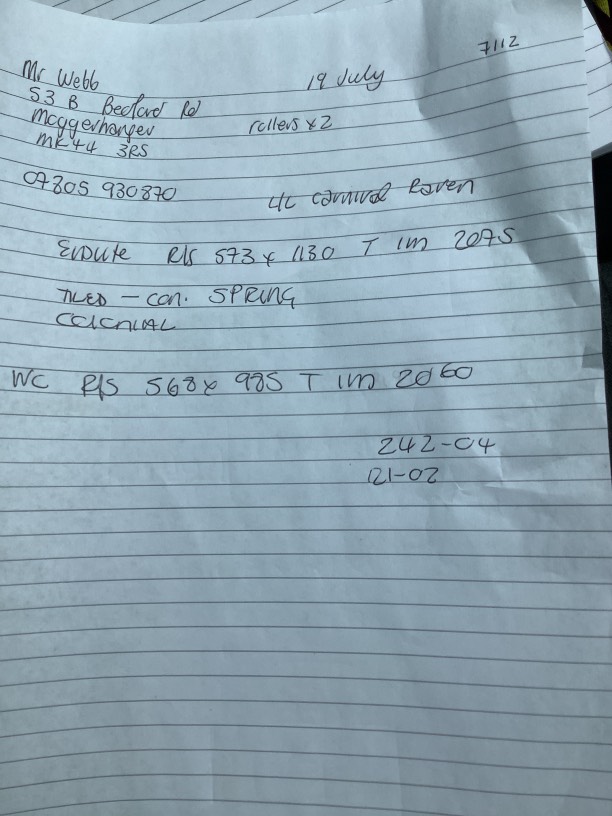 7112
Mr Webb 19 July
53 B Bedford Rd
Moggerhanger rollers x 2
MK44 3RS
07805 930870 4L carnival Raven
R/S 573 x 1130 T 1m 2075
TILED - CON. SPRING
COLONIAL
WC R/S 568 x 985 T 1m 2060
242-04
121-02